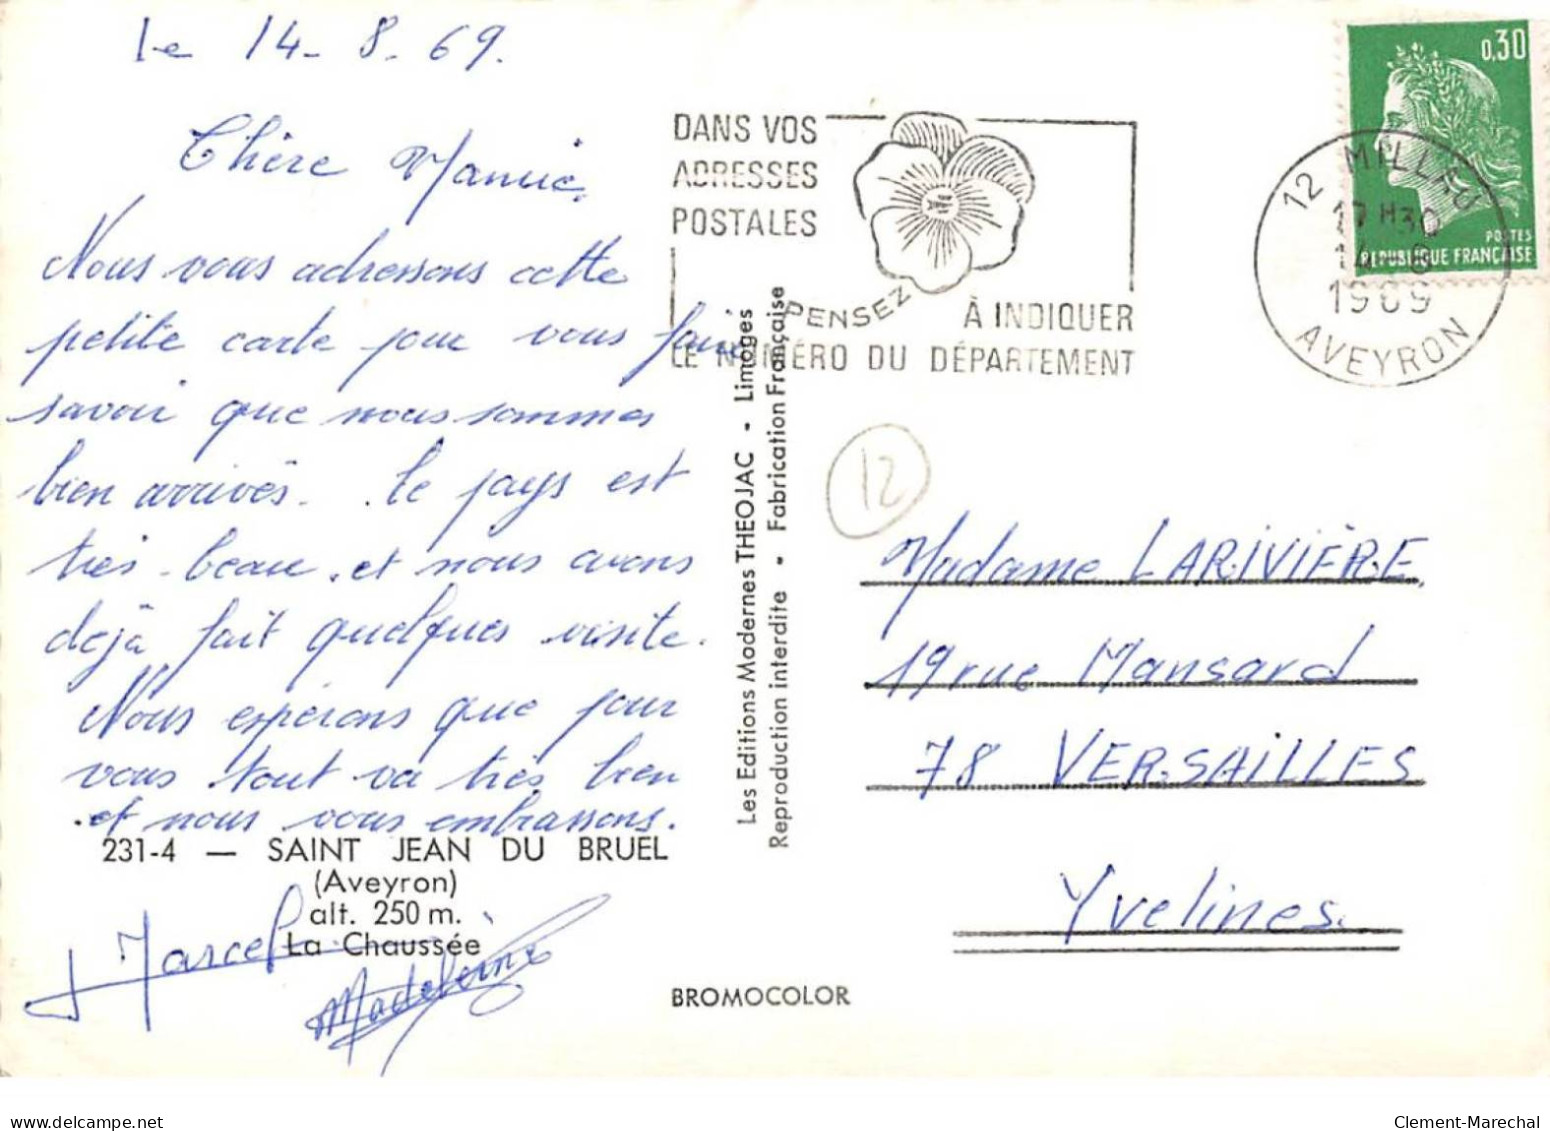 le 14-8-69.
Chère Mamie,
Nous vous adressons cette
petite carte pour vous faire
savoir que nous sommes
bien arrivés. Le pays est
très beau et nous avons
déjà fait quelques visite.
Nous espérons que pour
vous tout va très bien
et nous vous embrassons.
231-4 — SAINT JEAN DU BRUEL
(Aveyron)
alt. 250 m.
La Chaussée
Marcel
Madeleine
BROMOCOLOR
Les Editions Modernes THEOJAC - Limoges
Reproduction interdite - Fabrication Française
DANS VOS
ADRESSES
POSTALES
PENSEZ À INDIQUER
LE NUMÉRO DU DÉPARTEMENT
12 MILLAU
17H30
14-8
1969
AVEYRON
0,30
POSTES
REPUBLIQUE FRANÇAISE
12
Madame LARIVIÈRE,
19 rue Mansard
78 VERSAILLES
Yvelines.
delcampe.net
Clement-Marechal